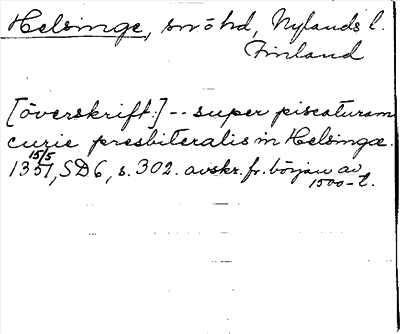 Helsinge, sn o hd, Nylands l.
Finland
[överskrift:] -- super piscaturam
curie presbiteralis in Helsingæ.
15/5
1351, SD6, s. 302. avskr. fr. början av
1500-t.